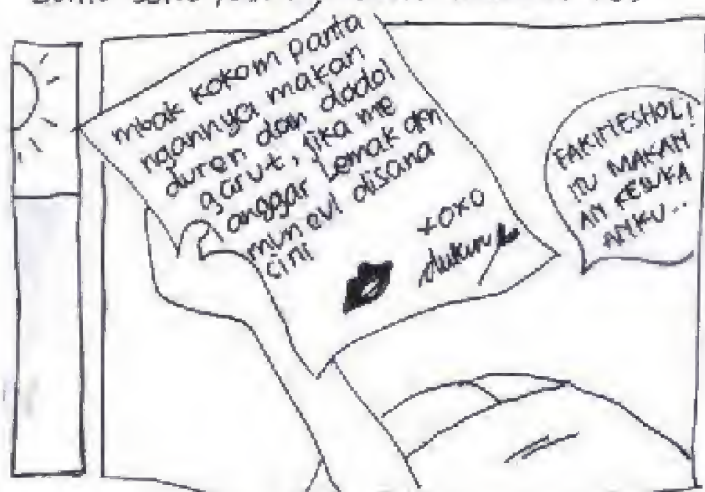 mbak kokom panta
ngannya makan
duren dan dodol
garut, jika me
anggar lemak akn
muncul disana
cini
xoxo
dukun
FAKIMESHOL!
ITU MAKAN
AN KESUKA
ANKU..